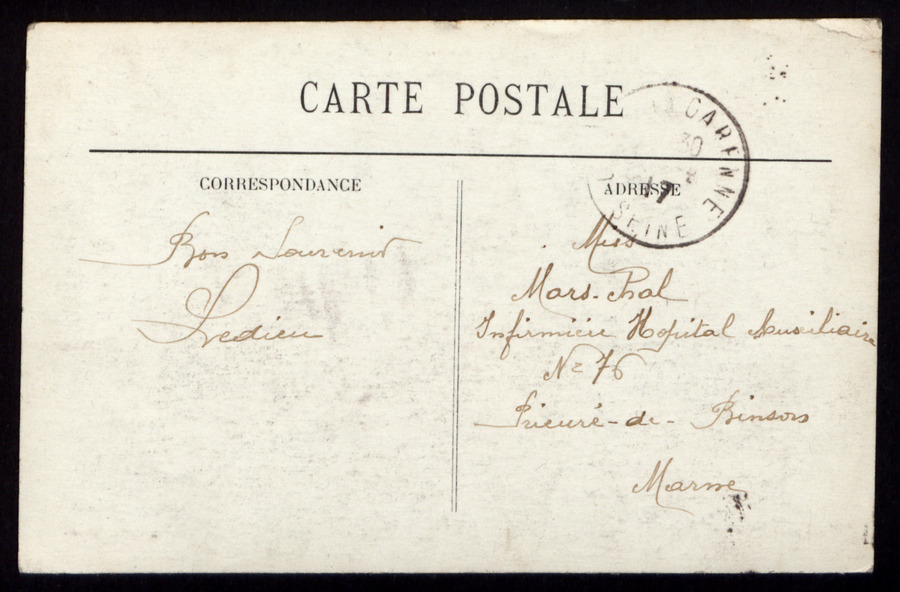 CARTE POSTALE
GARENNE
30
17
SEINE
CORRESPONDANCE
ADRESSE
Bon Souvenir
Ledieu
Miss
Mars-Phal
Infirmière Hopital Auxiliaire
No 76
Prieuré-de-Binson
Marne